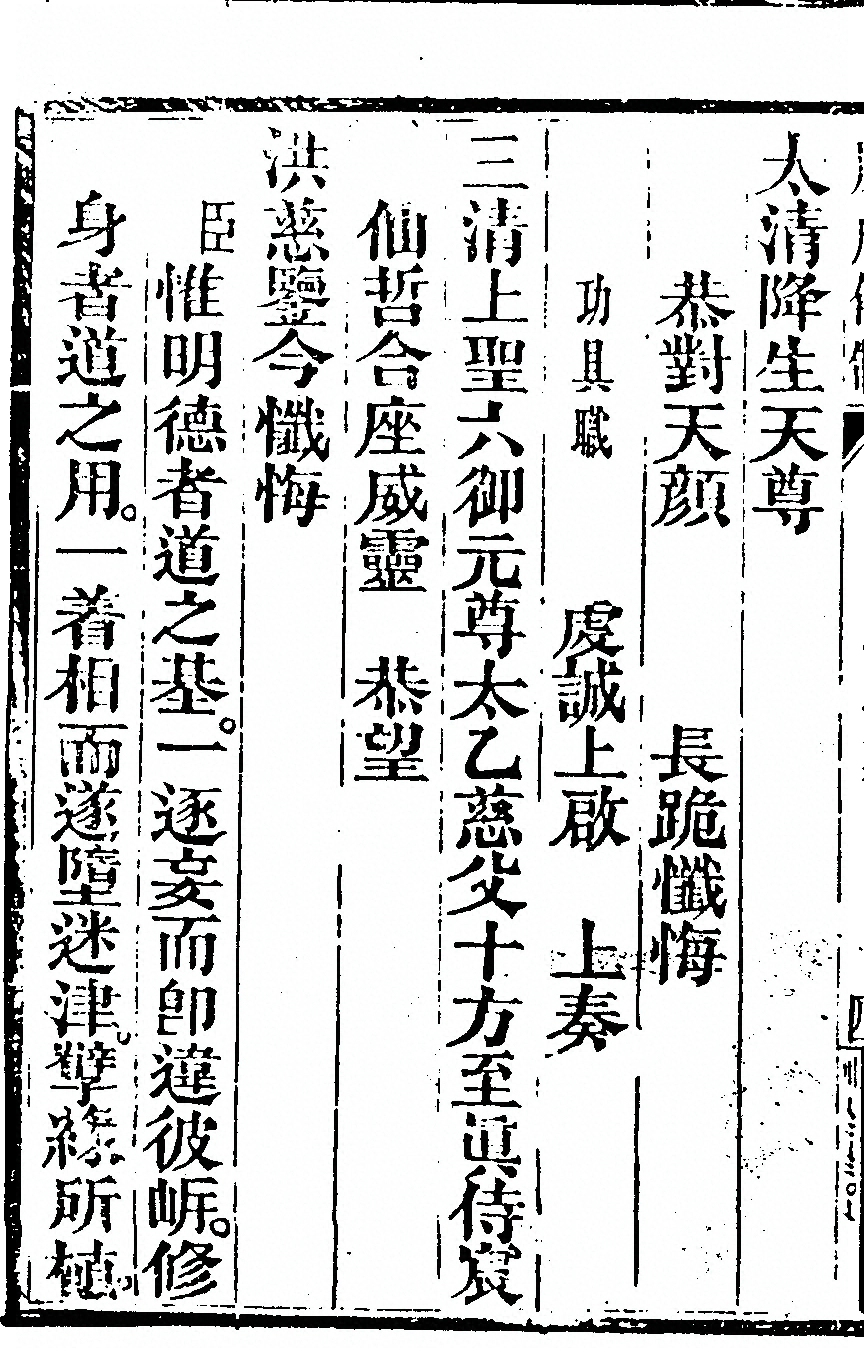 太清降生天尊
恭對天顔　長跪懺悔
功具職　虔誠上啟　上奏
三清上聖六御元尊太乙慈父十方至眞侍宸
仙哲合座威靈　恭望
洪慈鑒今懺悔
臣惟明德者道之基。一逐妄而卽違彼㟁。修
身者道之用。一着相而遂墮迷津。孽緣所植。